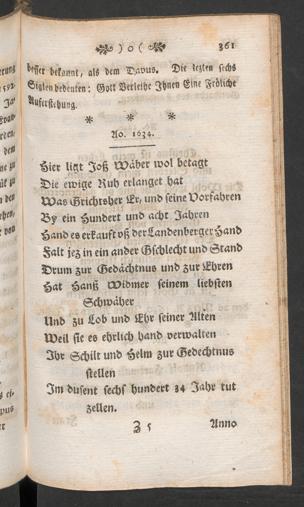 ) o (
361
besser bekannt, als dem Davus. Die lezten sechs
Siglen bedeuten: Gott Verleihe Ihnen Eine Fröliche
Auferstehung.
* * *
Ao. 1634.
Hier ligt Joß Wäber wol betagt
Die ewige Ruh erlanget hat
Was Grichtsher Er, und seine Vorfahren
By ein Hundert und acht Jahren
Hand es erkauft vß der Landenberger Hand
Falt jez in ein ander Gschlecht und Stand
Drum zur Gedächtnus und zur Ehren
Hat Hanß Widmer seinem liebsten
Schwäher
Und zu Lob und Ehr seiner Alten
Weil sie es ehrlich hand verwalten
Ihr Schilt und Helm zur Gedechtnus
stellen
Im dusent sechs hundert 34 Jahr tut
zellen.
Z 5
Anno